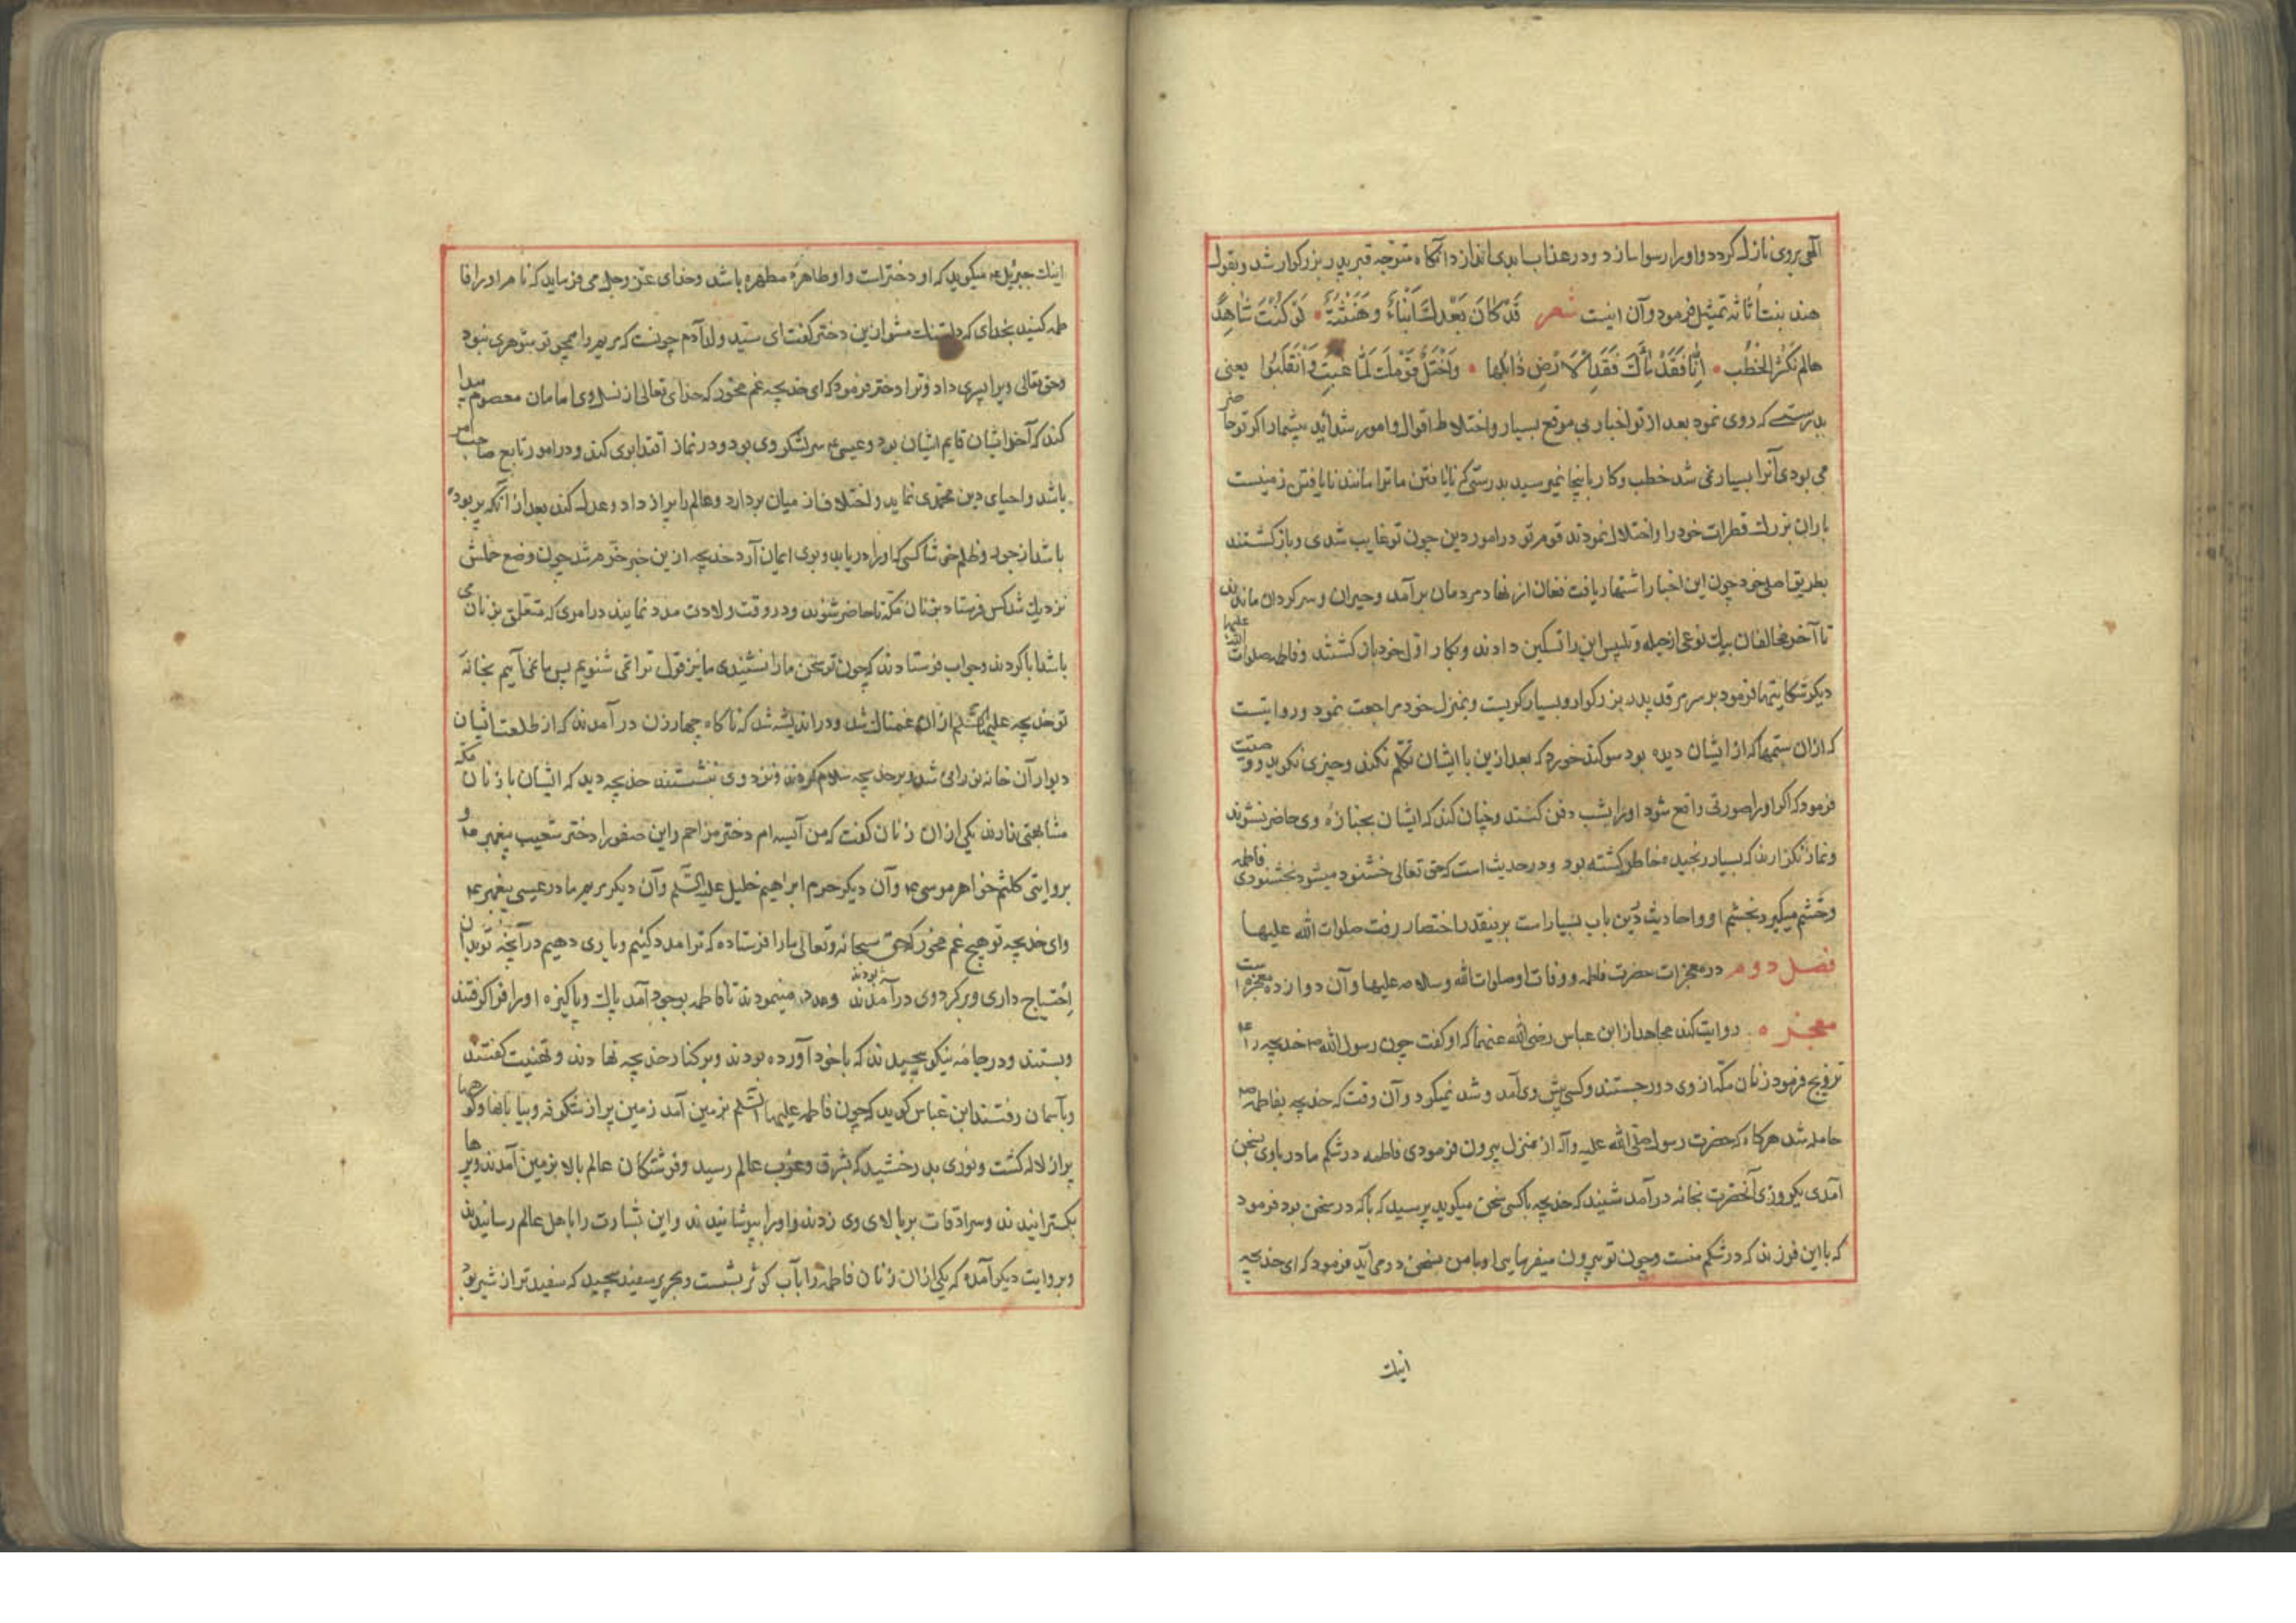 الهی بروی نازل کردد و او را رسوا سازد و در عذاب ابدی اندازد انکاه متوجه قبر پدر بزرکوار شد و بقول
هند بنت اثاثه تمثیل فرمود و آن اینست شعر قَدْ کَانَ بَعْدَكَ اَنْبَاءٌ وَهَنْبَثَةٌ لَوْ کُنْتَ شَاهِدَ
هالم تکثر الخطب اِنَّا فَقَدْنَاكَ فَقْدَ الْاَرْضِ وَابِلَهَا وَاخْتَلَّ قَوْمُكَ لَمَّا غِبْتَ وَانْقَلَبُوا یعنی
بدرستی که روی نمود بعد از تو اخبار بی موقع بسیار و اختلاط اقوال و امور شداید بیشمار اکر تو حاضر
می بودی آنرا بسیار نمی شد خطب و کار باینجا نمیرسید بدرستی که نایافتن ما ترا مانند نایافتن زمینست
باران بزرك قطرات خود را و اختلال نمودند قوم تو در امور دین چون تو غایب شدی و باز کشتند
بطریق اصلی خود چون این اخبار اشتهار یافت فغان از نهاد مردمان برآمد و حیران و سرکردان ماندند
تا آخر مخالفان بیك نوعی از حیله و تلبیس این را تسکین دادند و بکار اول خود باز کشتند و فاطمه صلوات الله علیها
دیکر شکایتها فرمود بر سر مرقد پدر بزرکوار و بسیار کریست و بمنزل خود مراجعت نمود و روایتست
که ازان ستمها که از ایشان دیده بود سوکند خورد که بعد ازین با ایشان تکلم نکند و چیزی نکوید و وصیت
فرمود که اکر او را صورتی واقع شود او را بشب دفن کنند و چنان کند که ایشان بجنازهٔ وی حاضر نشوند
و نماز نکزارند که بسیار رنجیده خاطر کشته بود و در حدیث است که حق تعالی خشنود میشود بخشنودی فاطمه
و خشم میکیرد بخشم او و احادیث درین باب بسیار است برینقدر اختصار رفت صلوات الله علیها
فصل دوم در معجزات حضرت فاطمه و وفات او صلوات الله وسلامه علیها و آن دوازده معجزه است
معجزه روایت کند مجاهد از ابن عباس رضی الله عنهما که او کفت چون رسول الله ص خدیجه را
تزویج فرمود زنان مکه از وی دور جستند و کسی پیش وی آمد و شد نمیکرد و آن وقت که خدیجه بفاطمه
حامله شد هرکاه که حضرت رسول صلی الله علیه وآله از منزل بیرون فرمودی فاطمه در شکم مادر باوی بسخن
آمدی یکروزی آنحضرت بخانه درآمد شنید که خدیجه باکسی سخن میکوید پرسید که باکه در سخن بود فرمود
که با این فرزند که در شکم منست و چون تو بیرون میفرمایی او بامن بسخن درمی آید فرمود که ای خدیجه
اینك
اینك جبرئیل میکوید که او دختر است و او طاهرهٔ مطهره باشد و خدای عز وجل می فرماید که نام او را فا
طمه کنید بخدای که دلتنك مشو ازین دختر کفت ای سید ولد آدم چونست که مریم را همچو تو شوهری نبود
و حق تعالی ویرا پسری داد و ترا دختر فرمود که ای خدیجه غم مخور که خدای تعالی از نسل وی امامان معصوم پیدا
کند که آخر ایشان قایم ایشان بود و عیسی سر لشکر وی بود و در نماز اقتدا بوی کند و در امور تابع صاحب امر
باشد و احیای دین محمدی نماید و اختلاف از میان بردارد و عالم را پر از داد و عدل کند بعد از آنکه پر بوده
باشد از جور و ظلم خوشا کسی که او را دریابد و بوی ایمان آرد خدیجه ازین خبر خرم شد چون وضع حملش
نزدیك شد کس فرستاد بزنان مکه تا حاضر شوند و در وقت ولادت مدد نمایند در امری که متعلق بزنان می
باشد ابا کردند و جواب فرستادند که چون تو سخن ما را نشنیدی ما نیز قول ترا نمی شنویم پس ما نمی آییم بخانهٔ
تو خدیجه علیها السلم ازان غمناك شد و در اندیشه شد که ناکاه چهار زن درآمدند که از طلعت ایشان
دیوار آن خانه نورانی شد بر خدیجه سلام کردند و نزد وی بنشستند خدیجه دید که ایشان با زنان مکه
مشابهتی ندارند یکی ازان زنان کفت که من آسیه ام دختر مزاحم و این صفورا دختر شعیب پیغمبر و
بروایتی کلثم خواهر موسی و آن دیکر حرم ابراهیم خلیل علیه السلم و آن دیکر مریم مادر عیسی پیغمبر
و ای خدیجه تو هیچ غم مخور که حق سبحانه وتعالی ما را فرستاده که ترا مدد کنیم و یاری دهیم در آنچه تو بدان
احتیاج داری و بر کرد وی درآمدند و مدد مینمودند تا فاطمه بوجود آمد پاك و پاکیزه او را فرا کرفتند
و بستند و در جامهٔ نیکو پیچیدند که باخود آورده بودند و بر کنار خدیجه نهادند و تهنیت کفتند
و بآسمان رفتند ابن عباس کوید که چون فاطمه علیها السلم بزمین آمد زمین پر از شکوفه و بیابانها و کوهها
پر از لاله کشت و نوری بدرخشید که بشرق و غرب عالم رسید و فرشتکان عالم بالا بزمین آمدند و پرها
بکسترانیدند و سرادقات بر بالای وی زدند و او را بپوشانیدند و این بشارت را باهل عالم رسانیدند
و بروایت دیکر آمده که یکی ازان زنان فاطمه را بآب کوثر بشست و بحریر سفید پیچید که سفیدتر از شیر بود